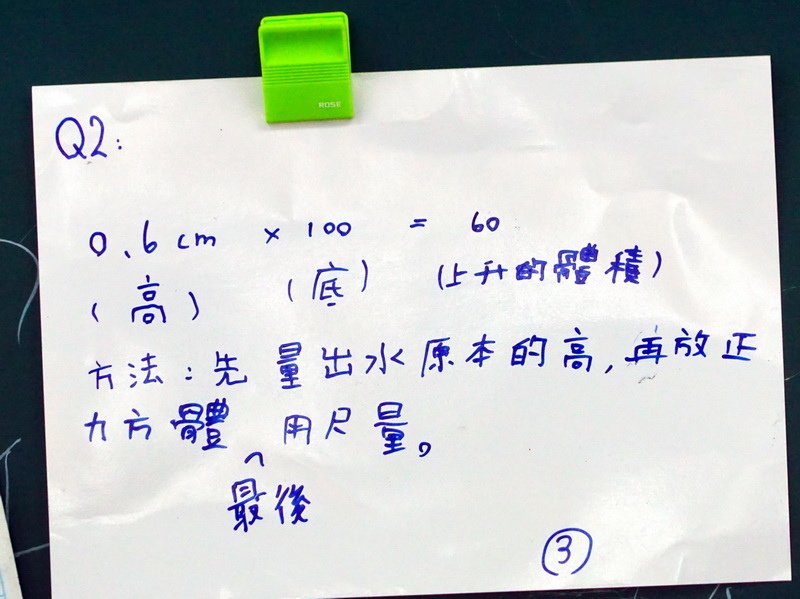 ROSE
Q2:
0.6cm × 100 = 60
(高) (底) (上升的體積)
方法:先量出水原本的高,再放正
方體 用尺量。
^
最後
③